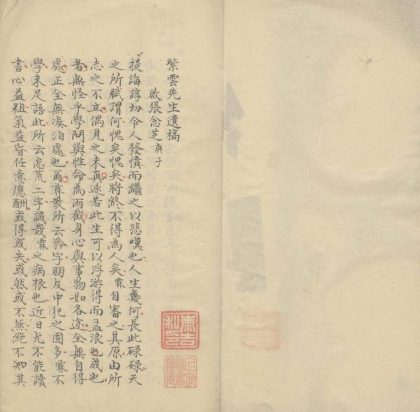 紫雲先生遺稿
啟張念芝庚子
提誨諄切令人發憤而繼之以悲嘆也人生幾何長此碌碌天
之所賦謂何愧矣愧矣將煞不得為人矣霖自審之其原由所
志之不立偶見之未真遂若此生可以浮游得而孟浪也成也
若無怪乎學問與性命為兩截身心與事物如各途全無自得
處正全無湊泊處也而尊教所云矜字朋友中犯之固多霖不
學未足語此所云怠荒二字誠哉霖之病根也近日尤不能讀
書心益粗氣益昏任意應酬或得或失或然或不然絕不知其